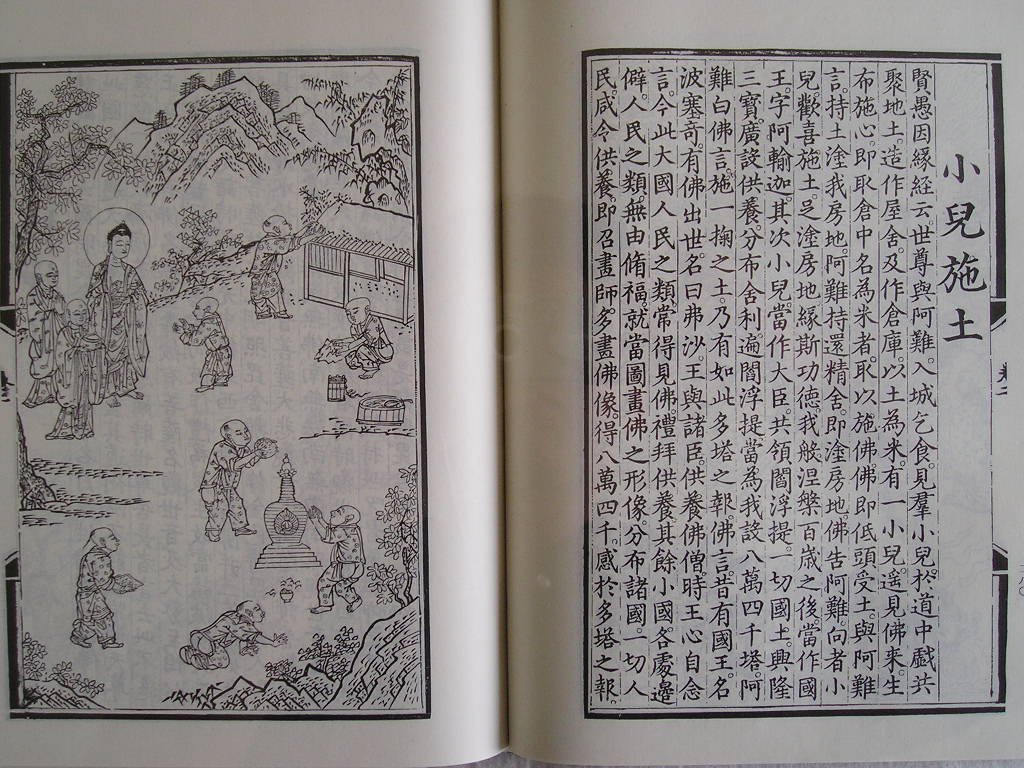 小兒施土
賢愚因緣經云世尊與阿難入城乞食見羣小兒於道中戲共
聚地土造作屋舍及作倉庫以土為米有一小兒遙見佛來生
布施心即取倉中名為米者取以施佛佛即低頭受土與阿難
言持土塗我房地阿難持還精舍即塗房地佛告阿難向者小
兒歡喜施土足塗房地緣斯功德我般涅槃百歲之後當作國
王字阿輸迦其次小兒當作大臣共領閻浮提一切國土興隆
三寶廣設供養分布舍利遍閻浮提當為我設八萬四千塔阿
難白佛言施一掬之土乃有如此多塔之報佛言昔有國王名
波塞奇有佛出世名曰弗沙王與諸臣供養佛僧時王心自念
言今此大國人民之類常得見佛禮拜供養其餘小國各處邊
僻人民之類無由脩福就當圖畫佛之形像分布諸國一切人
民咸令供養即召畫師多畫佛像得八萬四千感於多塔之報